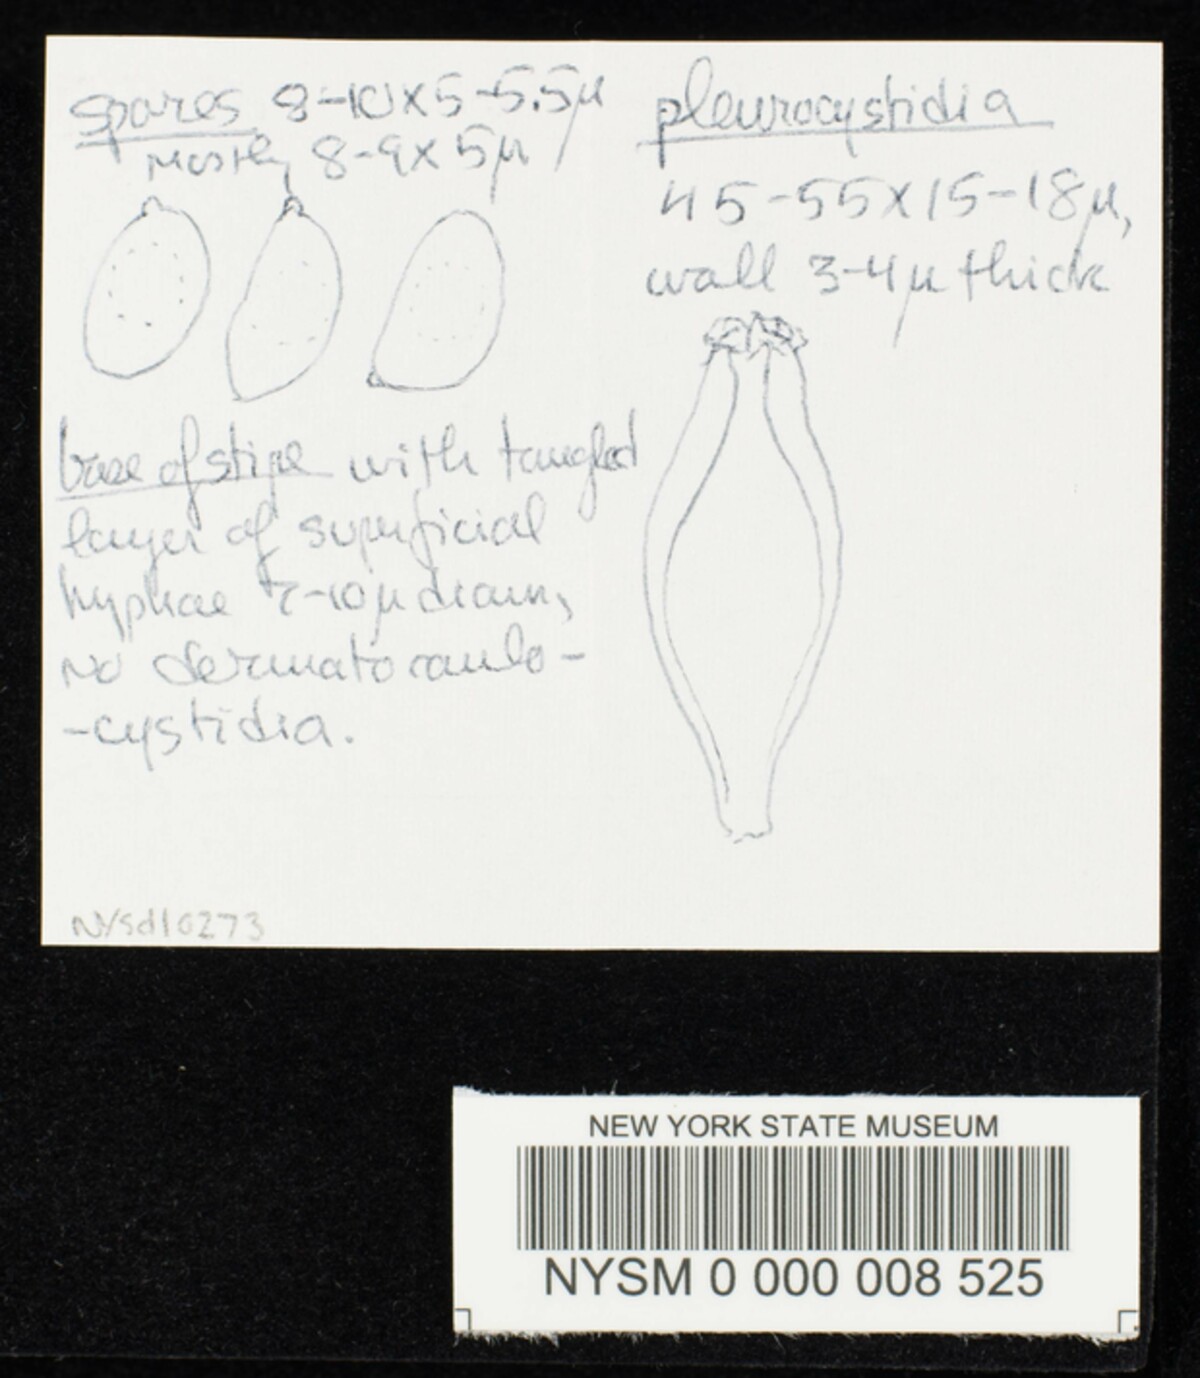 spores 8-10x5-5.5µ
mostly 8-9x5µ
base of stipe with tangled
layer of superficial
hyphae 7-10µ diam,
no dermatocaulo-
-cystidia.
pleurocystidia
45-55x15-18µ,
wall 3-4µ thick
NYSd10273
NEW YORK STATE MUSEUM
NYSM 0 000 008 525